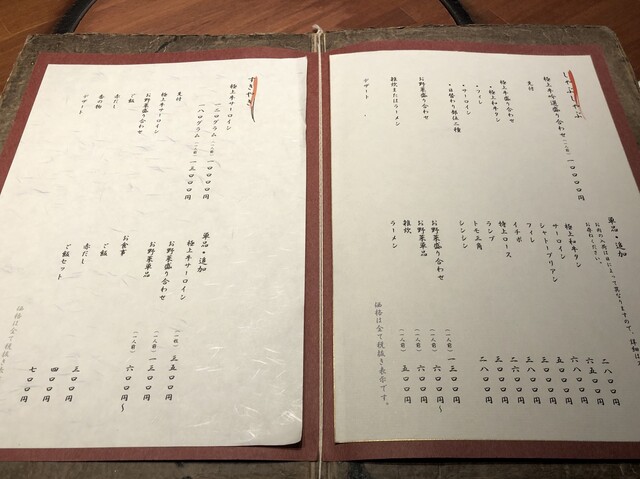 しゃぶしゃぶ
極上牛吟選盛り合わせ 一〇〇〇〇円
先付
極上牛盛り合わせ
・極上和牛タン
・フィレ
・サーロイン
・日替わり部位二種
お野菜盛り合わせ
雑炊またはラーメン
デザート
単品・追加
お肉の入荷は日によって異なりますので、詳細は
お尋ねください。
極上和牛タン 二八〇〇円
サーロイン 六五〇〇円
シャトーブリアン 六八〇〇円
フィレ 三〇〇〇円
イチボ 三五〇〇円
特上ロース 三〇〇〇円
ランプ 二六〇〇円
トモ三角 三〇〇〇円
シンシン 二八〇〇円
お野菜盛り合わせ (一人前) 一三〇〇円
お野菜単品 (一人前) 六〇〇円〜
雑炊 (一人前) 五〇〇円
ラーメン (一人前) 六〇〇円
価格は全て税抜き表示です。
すきやき
極上牛サーロイン
一二〇グラム (一人前) 一〇〇〇〇円
一八〇グラム (一人前) 一三〇〇〇円
先付
極上牛サーロイン
お野菜盛り合わせ
ご飯
赤だし
香の物
デザート
単品・追加
極上牛サーロイン (一枚) 三五〇〇円
お野菜盛り合わせ (一人前) 一三〇〇円
お野菜単品 (一人前) 六〇〇円〜
お食事
ご飯 三〇〇円
赤だし 四〇〇円
ご飯セット 七〇〇円
価格は全て税抜き表示です